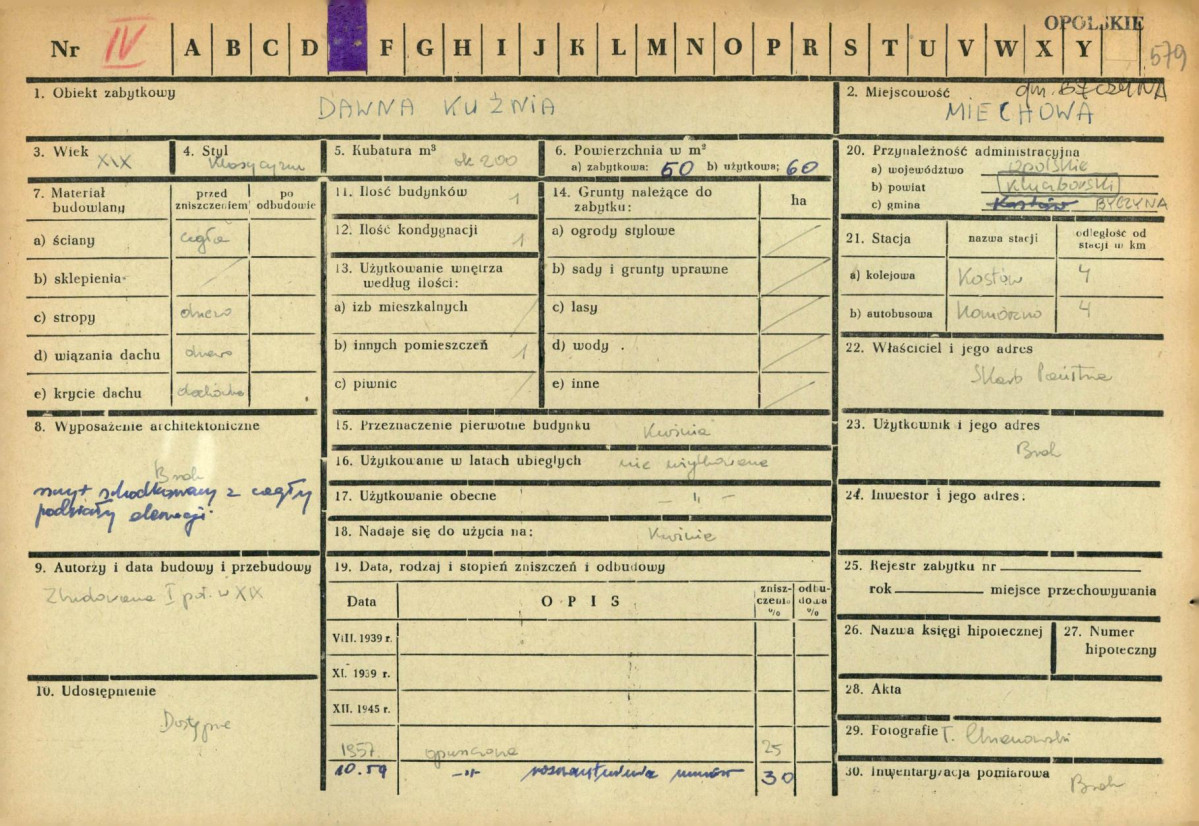 OPOLSKIE
Nr IV A B C D F G H I J K L M N O P R S T U V W X Y 579
1. Obiekt zabytkowy
DAWNA KUŹNIA
2. Miejscowość gm. BYCZYNA
MIECHOWA
3. Wiek XIX
4. Styl Klasycyzm
5. Kubatura m³ ok 200
6. Powierzchnia w m²
a) zabytkowa: 50 b) użytkowa: 60
20. Przynależność administracyjna
a) województwo opolskie
b) powiat Kluczborski
c) gmina Kostów BYCZYNA
7. Materiał budowlany
przed zniszczeniem
po odbudowie
a) ściany cegła
b) sklepienia
c) stropy drewno
d) wiązania dachu drewno
e) krycie dachu dachówka
11. Ilość budynków 1
12. Ilość kondygnacji 1
13. Użytkowanie wnętrza
według ilości:
a) izb mieszkalnych
b) innych pomieszczeń 1
c) piwnic
14. Grunty należące do
zabytku:
ha
a) ogrody stylowe
b) sady i grunty uprawne
c) lasy
d) wody
e) inne
21. Stacja
nazwa stacji
odległość od
stacji w km
a) kolejowa Kostów 4
b) autobusowa Komorzno 4
22. Właściciel i jego adres
Skarb Państwa
8. Wyposażenie architektoniczne
Brak
szczyt schodkowany z cegły
podziały elewacji
15. Przeznaczenie pierwotne budynku Kuźnia
16. Użytkowanie w latach ubiegłych nie użytkowana
17. Użytkowanie obecne — " —
18. Nadaje się do użycia na: Kuźnię
23. Użytkownik i jego adres
Brak
24. Inwestor i jego adres:
9. Autorzy i data budowy i przebudowy
Zbudowana I poł. w XIX
19. Data, rodzaj i stopień zniszczeń i odbudowy
Data
OPIS
znisz-
czenia
%
odbu-
dowa
%
VIII. 1939 r.
XI. 1939 r.
XII. 1945 r.
1957 opuszczona 25
10.59 -"- murów 30
25. Rejestr zabytku nr
rok miejsce przechowywania
26. Nazwa księgi hipotecznej
27. Numer
hipoteczny
10. Udostępnienie
Dostępne
28. Akta
29. Fotografie T. Chrzanowski
30. Inwentaryzacja pomiarowa
Brak